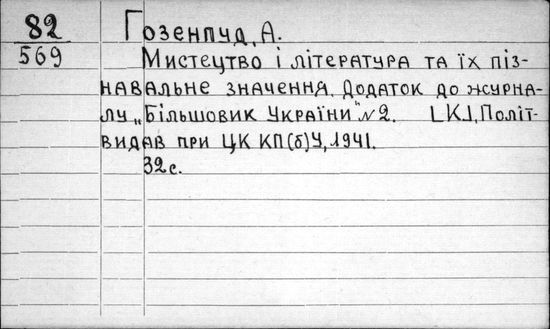 82
569
Гозенпуд, А.
Мистецтво і література та їх піз-
навальне значення. Додаток до журна-
лу „Більшовик України" №2. [К.], Політ-
видав при ЦК КП(б)У, 1941.
32с.